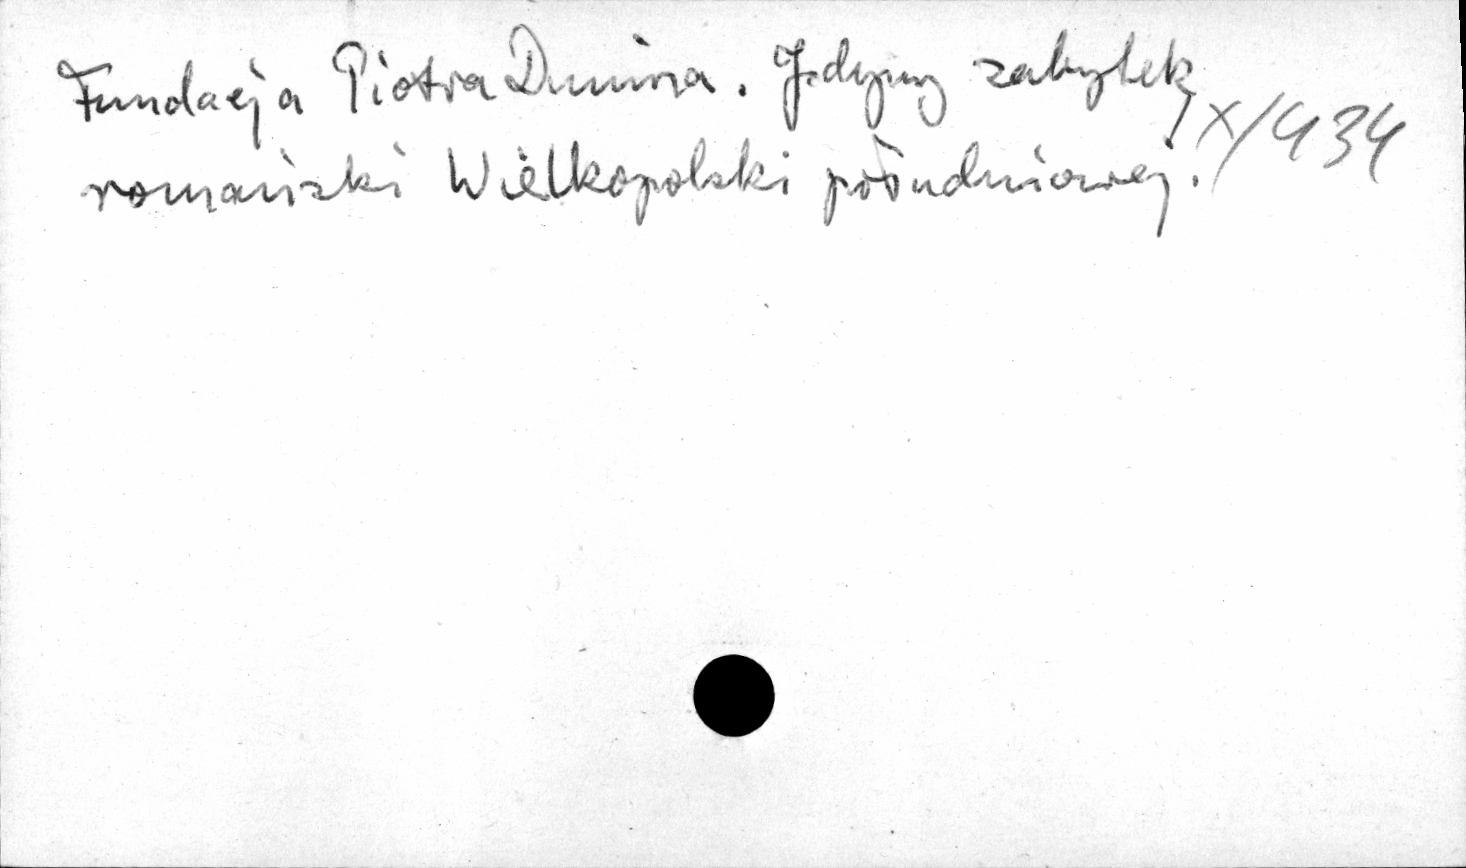 Fundacja Piotra Dunina. Jedyny zabytek X/434
romański Wielkopolski południowej.